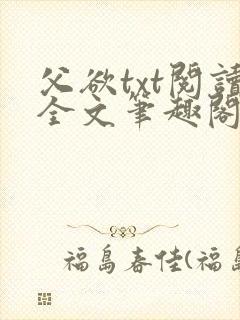 父欲txt閱讀
全文筆趣閣
福島春佳(福島